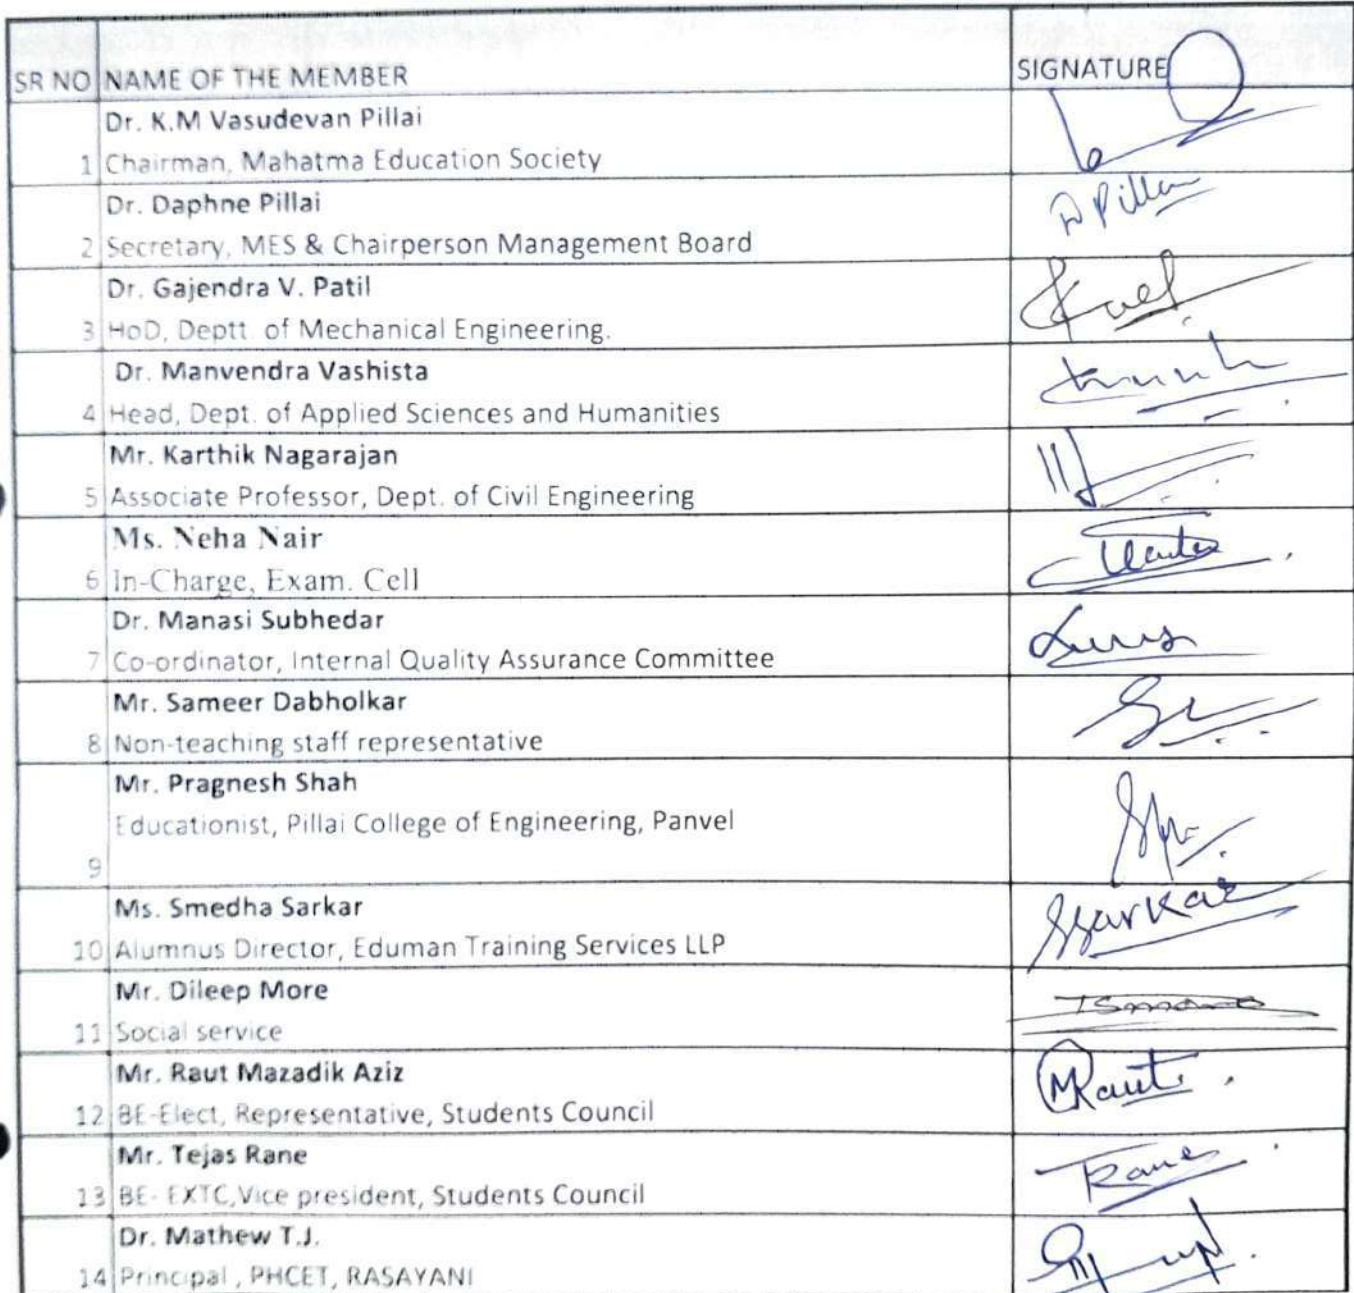 SR NO NAME OF THE MEMBER SIGNATURE
Dr. K.M Vasudevan Pillai
1 Chairman, Mahatma Education Society
Dr. Daphne Pillai
D Pillai
2 Secretary, MES & Chairperson Management Board
Dr. Gajendra V. Patil
3 HoD, Deptt. of Mechanical Engineering.
Dr. Manvendra Vashista
4 Head, Dept. of Applied Sciences and Humanities
Mr. Karthik Nagarajan
5 Associate Professor, Dept. of Civil Engineering
Ms. Neha Nair
6 In-Charge, Exam. Cell
Dr. Manasi Subhedar
7 Co-ordinator, Internal Quality Assurance Committee
Mr. Sameer Dabholkar
8 Non-teaching staff representative
Mr. Pragnesh Shah
Educationist, Pillai College of Engineering, Panvel
9
Ms. Smedha Sarkar
SSarkar
10 Alumnus Director, Eduman Training Services LLP
Mr. Dileep More
11 Social service
Mr. Raut Mazadik Aziz
MRaut
12 BE-Elect, Representative, Students Council
Mr. Tejas Rane
TRane
13 BE- EXTC,Vice president, Students Council
Dr. Mathew T.J.
14 Principal , PHCET, RASAYANI